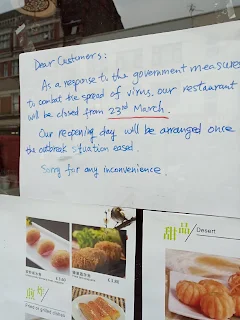 Dear Customers:
As a response to the government measures
to combat the spread of virus, our restaurant
will be closed from 23rd March.
Our reopening day will be arranged once
the outbreak situation eased.
Sorry for any inconvenience.
甜品 Dessert